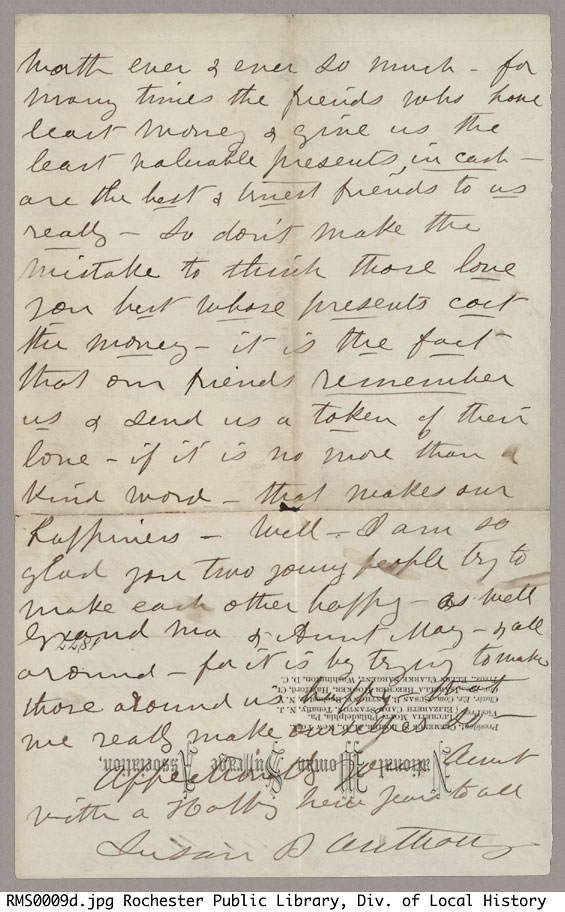 worth ever & ever so much - for
many times the friends who have
least money & give us the
least valuable presents, in cash -
are the best & truest friends to us
really - So don't make the
mistake to think those love
you best whose presents cost
the money - it is the fact
that our friends remember
us & send us a token of their
love - if it is no more than a
kind word - that makes our
happiness - Well - I am so
glad you two young people try to
make each other happy - as well
Grand ma & Aunt May - & all
around - for it is by trying to make
those around us happy that
we really make ourselves so -
Affectionately your Aunt
with a Happy New Year to all
Susan B Anthony
National Woman Suffrage Association.
President, CLEMENCE S. LOZIER, M. D., New York.
Vice Pres't LUCRETIA MOTT, Philadelphia, Pa.
ELIZABETH CADY STANTON, Tenafly, N. J.
Chair. Ex. Com. SUSAN B. ANTHONY, Rochester, N. Y.
ISABELLA BEECHER HOOKER, Hartford, Ct.
Treas. ELLEN CLARKE SARGENT, Washington, D. C.
187
RMS0009d.jpg Rochester Public Library, Div. of Local History